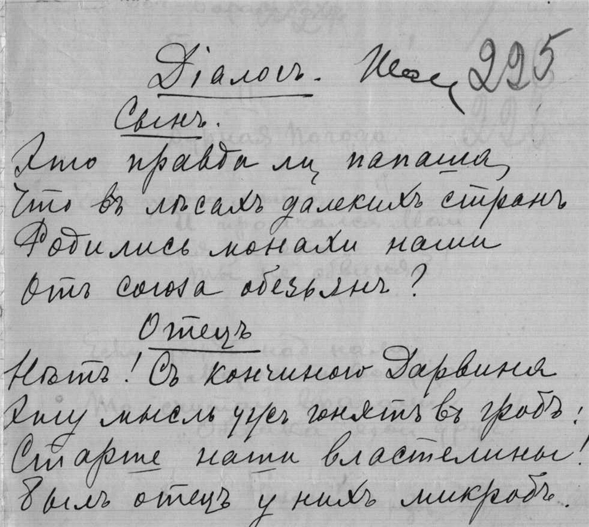 Діалогъ. 225
Сынъ.
Это правда ли, папаша,
Что въ лѣсахъ далекихъ странъ
Родились монахи наши
Отъ союза обезьянъ?
Отецъ
Нѣтъ! Съ кончиною Дарвина
Эту мысль ужъ гонятъ въ гробъ:
Старше наши властелины!
Былъ отецъ у нихъ микробъ.